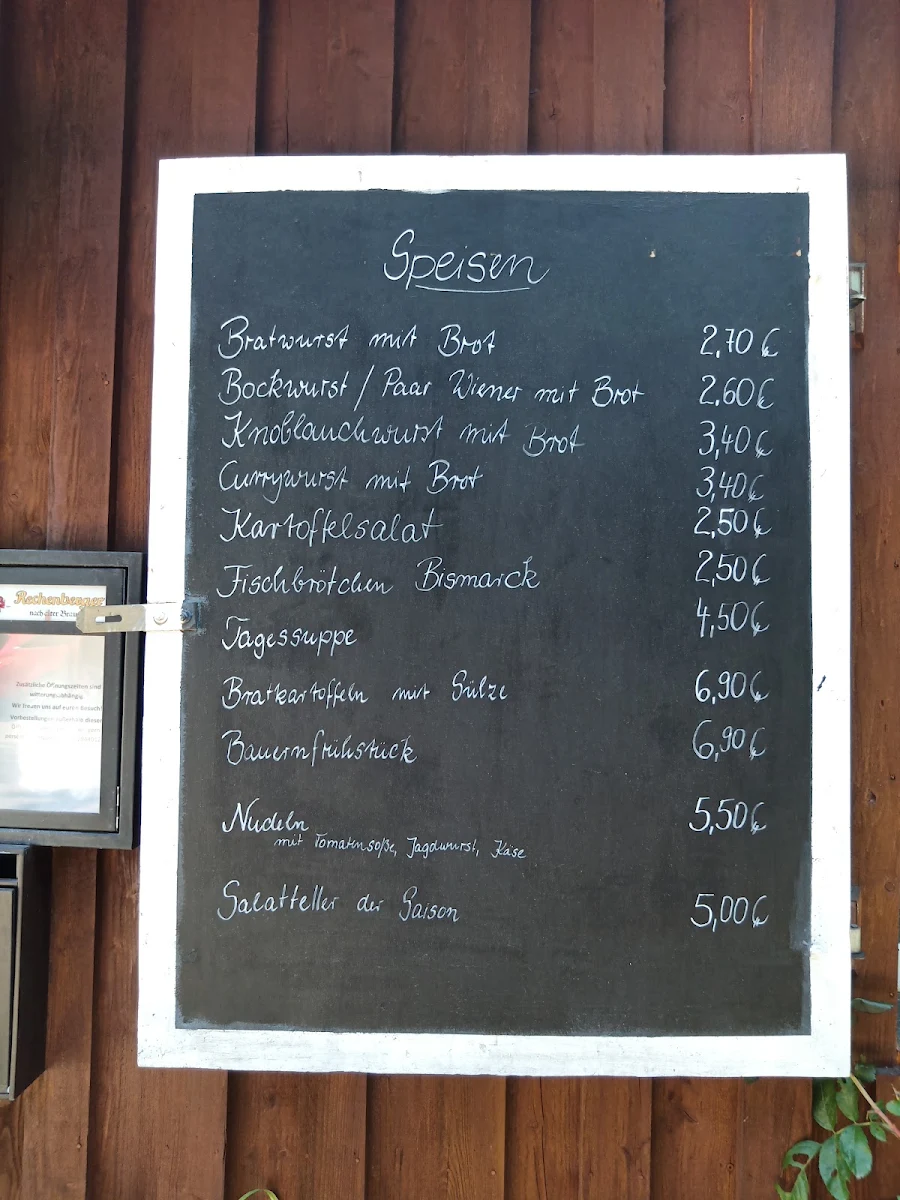 Speisen
Bratwurst mit Brot 2,70 €
Bockwurst / Paar Wiener mit Brot 2,60 €
Knoblauchwurst mit Brot 3,40 €
Currywurst mit Brot 3,40 €
Kartoffelsalat 2,50 €
Fischbrötchen Bismarck 2,50 €
Tagessuppe 4,50 €
Bratkartoffeln mit Sülze 6,90 €
Bauernfrühstück 6,90 €
Nudeln 5,50 €
mit Tomatensoße, Jagdwurst, Käse
Salatteller der Saison 5,00 €
Rechenberger
nach alter
Zusätzliche Öffnungszeiten sind
witterungsabhängig.
Wir freuen uns auf euren Besuch!
Vorbestellungen außerhalb dieser